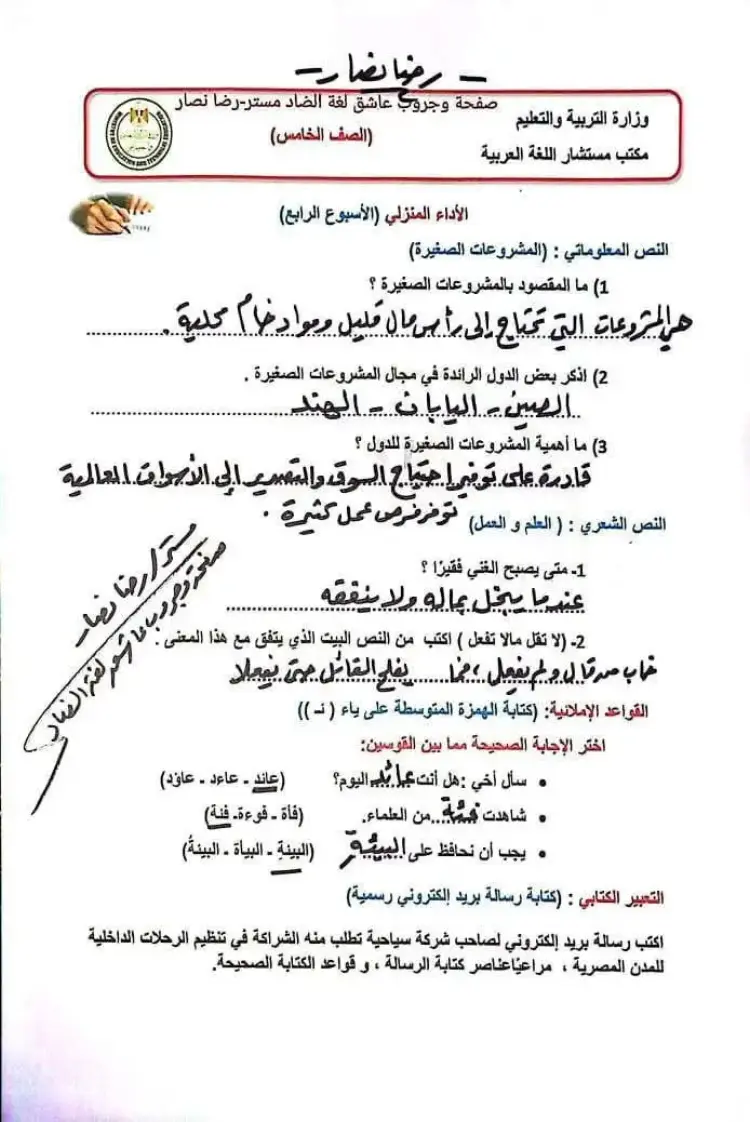 - رضا نصار -
صفحة وجروب عاشق لغة الضاد مستر-رضا نصار
وزارة التربية والتعليم
(الصف الخامس)
مكتب مستشار اللغة العربية
الأداء المنزلي (الأسبوع الرابع)
النص المعلوماتي : (المشروعات الصغيرة)
1) ما المقصود بالمشروعات الصغيرة ؟
هي المشروعات التي تحتاج إلى رأس مال قليل ومواد خام محلية .
2) اذكر بعض الدول الرائدة في مجال المشروعات الصغيرة .
الصين - اليابان - الهند
3) ما أهمية المشروعات الصغيرة للدول ؟
قادرة على توفير احتياج السوق والتصدير إلى الأسواق العالمية
توفر فرص عمل كثيرة .
النص الشعري : ( العلم و العمل)
1- متى يصبح الغني فقيرًا ؟
عندما يبخل بماله ولا ينفقه
2- (لا تقل مالا تفعل ) اكتب من النص البيت الذي يتفق مع هذا المعنى .
خاب من قال ولم يفعل ، فما يفلح القائل حتى يفعلا
القواعد الإملائية: (كتابة الهمزة المتوسطة على ياء ( ئـ ))
اختر الإجابة الصحيحة مما بين القوسين:
• سأل أخي :هل أنت عائد اليوم؟ (عائد - عاءد - عاؤد)
• شاهدت فئة من العلماء. (فأة - فوءة- فئة)
• يجب أن نحافظ على البيئةِ (البيئةِ - البيأة - البيئةُ)
التعبير الكتابي : (كتابة رسالة بريد إلكتروني رسمية)
اكتب رسالة بريد إلكتروني لصاحب شركة سياحية تطلب منه الشراكة في تنظيم الرحلات الداخلية
للمدن المصرية ، مراعيًاعناصر كتابة الرسالة ، و قواعد الكتابة الصحيحة.
مستر/ رضا نصار
صفحة وجروب عاشق لغة الضاد